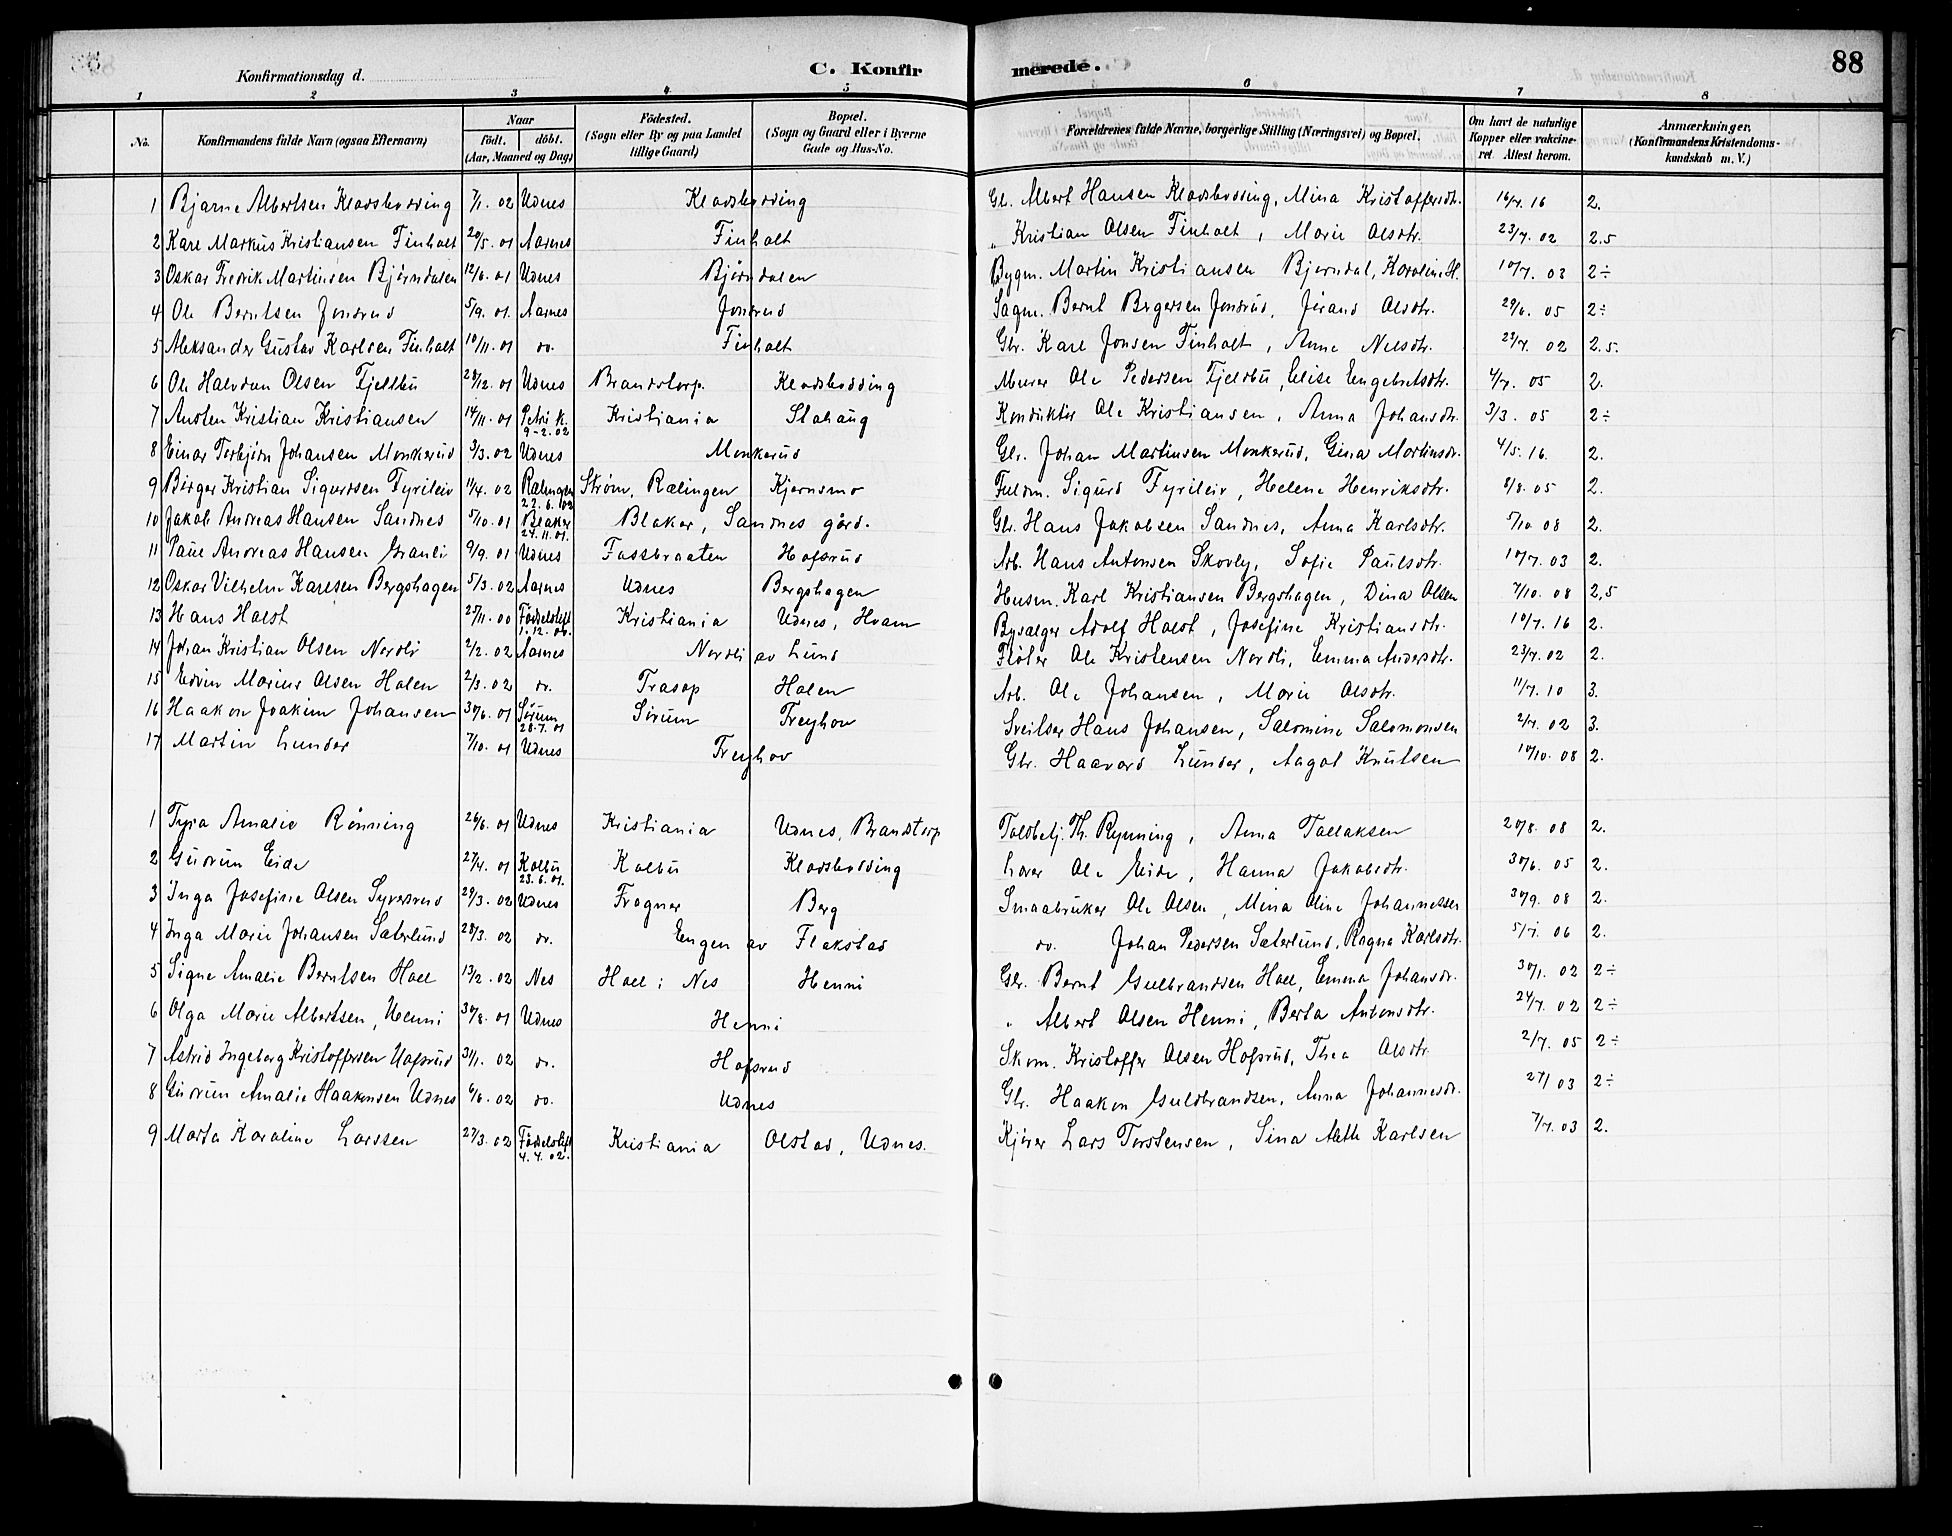 88
Konfirmationsdag d.
C. Konfirmerede.
1 2 3 4 5 6 7 8
No. Konfirmandens fulde Navn (ogsaa Efternavn) Naar födt. döbt. (Aar, Maaned og Dag) Födested. (Sogn eller By og paa Landet tillige Gaard) Bopæl. (Sogn og Gaard eller i Byerne Gade og Hus-No. Forældrenes fulde Navne, borgerlige Stilling (Næringsvei) og Bopæl. Om havt de naturlige Kopper eller vakcineret. Attest herom. Anmærkninger. (Konfirmandens Kristendomskundskab m. V.)
1 Bjarne Albertsen Klodsbodding 7/1. 02 Udnes Klodsbodding Gb. Albert Hansen Klodsbodding, Mina Kristoffersdtr. 16/4. 16 2.
2 Karl Markus Kristiansen Finholt 20/5. 01 Aarnes Finholt " Kristian Olsen Finholt, Marie Olsdtr. 23/7. 02 2.5
3 Oskar Fredrik Martinsen Björndalen 12/6. 01 Udnes Björndalen Bygm. Martin Kristiansen Bjerndal, Karoline H. 10/7. 03 2÷
4 Ole Berntsen Jonsrud 5/9. 01. Aarnes Jonsrud Sagm. Bernt Bergersen Jonsrud, Jörand Olsdtr. 29/6. 05 2÷
5 Aleksander Gustav Karlsen Finholt 10/11. 01 do. Finholt Gbr. Karl Jonsen Finholt, Anne Nilsdtr. 22/7. 02 2.5.
6 Ole Halvdan Olsen Fjeldbu 28/12. 01 Udnes Brandstorp. Klodsbodding Murer Ole Pedersen Fjeldbu, Elise Engebretsdtr. 4/7. 05 2.
7 Austen Kristian Kristiansen 14/11. 01 Petri k. 9-2.02 Kristiania Slahaug Konduktör Ole Kristiansen, Anna Johansdtr. 3/3. 05 2÷
8 Einar Torbjörn Johansen Monkerud 3/3. 02 Udnes Monkerud Gbr. Johan Martinsen Monkerud, Gina Martinsdr. 4/5. 16. 2.
9 Birger Kristian Sigurdsen Fyrileiv 11/4. 02 Rælingen 22.6.02 Ström, Rælingen Kjernsmo Fuldm. Sigurd Fyrileiv, Helene Henriksdtr. 8/8. 05 2.
10 Jakob Andreas Hansen Sandnes 5/10. 01 Blaker 24.11.01. Blaker, Sandnes gård. Gbr. Hans Jakobsen Sandnes, Anna Karlsdtr. 5/10. 08 2.
11 Paul Andreas Hansen Granli 9/9. 01 Udnes Fossbraaten Hofsrud Arb. Hans Antonsen Skovly, Sofie Paulsdtr. 10/7. 03 2.
12 Oskar Vilhelm Karlsen Bergshagen 5/3. 02 Aarnes Udnes Bergshagen Husm. Karl Kristiansen Bergshagen, Dina Olsen 7/10. 08 2,5
13 Hans Holst 25/11. 00 Födselsstift 1.12.00. Kristiania Udnes, Hvam Bysælger Adolf Holst, Josefine Kristiansdtr. 10/7. 16 2.
14 Johan Kristian Olsen Nordli 2/2. 02 Aarnes Nordli av Lund Flöter Ole Kristensen Nordli, Emma Andersdtr. 23/7. 02 2.
15 Edvin Marius Olsen Holen 2/3. 02 do. Trasop Holen Arb. Ole Johansen, Marie Olsdtr. 11/7. 10 3.
16 Haakon Joakim Johansen 30/6. 01 Sörum 28.7.01 Sörum Freyhov Sveitser Hans Johansen, Salomine Salomonsen 2/7. 02 3.
17 Martin Lunder 7/10. 01 Udnes Freyhov Gbr. Haavard Lunder, Aagot Knutsen 10/10. 08 2.
1 Tyra Amalie Rönning 26/6. 01 Udnes Kristiania Udnes, Brandstorp Toldbetj. Th. Rynning, Anna Tollaksen 20/8. 08 2.
2 Gudrun Eide 27/4. 01 Kolbu 23.6.01. Kolbu Klodsbodding Lærer Ole Eide, Hanna Jakobsdtr. 30/6. 05 2.
3 Inga Josefine Olsen Syversrud 29/3. 02 Udnes Frogner Berg Smaabruker Ole Olsen, Mina Oline Johannessen 30/9. 08 2.
4 Inga Marie Johansen Sæterlund 28/3. 02 do. Engen av Flakstad do. Johan Pedersen Sæterlund, Ragna Karlsdtr. 5/7. 06 2.
5 Signe Amalie Berntsen Holl 13/2. 02 Nes Holl i Nes Henni Gbr. Bernt Gulbrandsen Holl, Emma Johansdr. 30/1. 02 2÷
6 Olga Marie Albertsen, Henni 30/8. 01 Udnes Henni " Albert Olsen Henni, Berta Antonsdtr. 24/7. 02 2÷
7 Astrid Ingeborg Kristoffersen Hofsrud 31/1. 02 do. Hofsrud Skom. Kristoffer Olsen Hofsrud, Thea Olsdtr. 2/7. 05 2÷
8 Gudrun Amalie Haakonsen Udnes 6/6. 02 do. Udnes Gbr. Haakon Guldbrandsen, Anna Johannesdr. 27/ 03 2÷
9 Marta Karoline Larssen 27/3. 02 Födselsstift 4.4.02. Kristiania Olstad, Udnes. Kjörer Lars Torstensen, Sina Mathe Karlsen 7/7. 03 2.